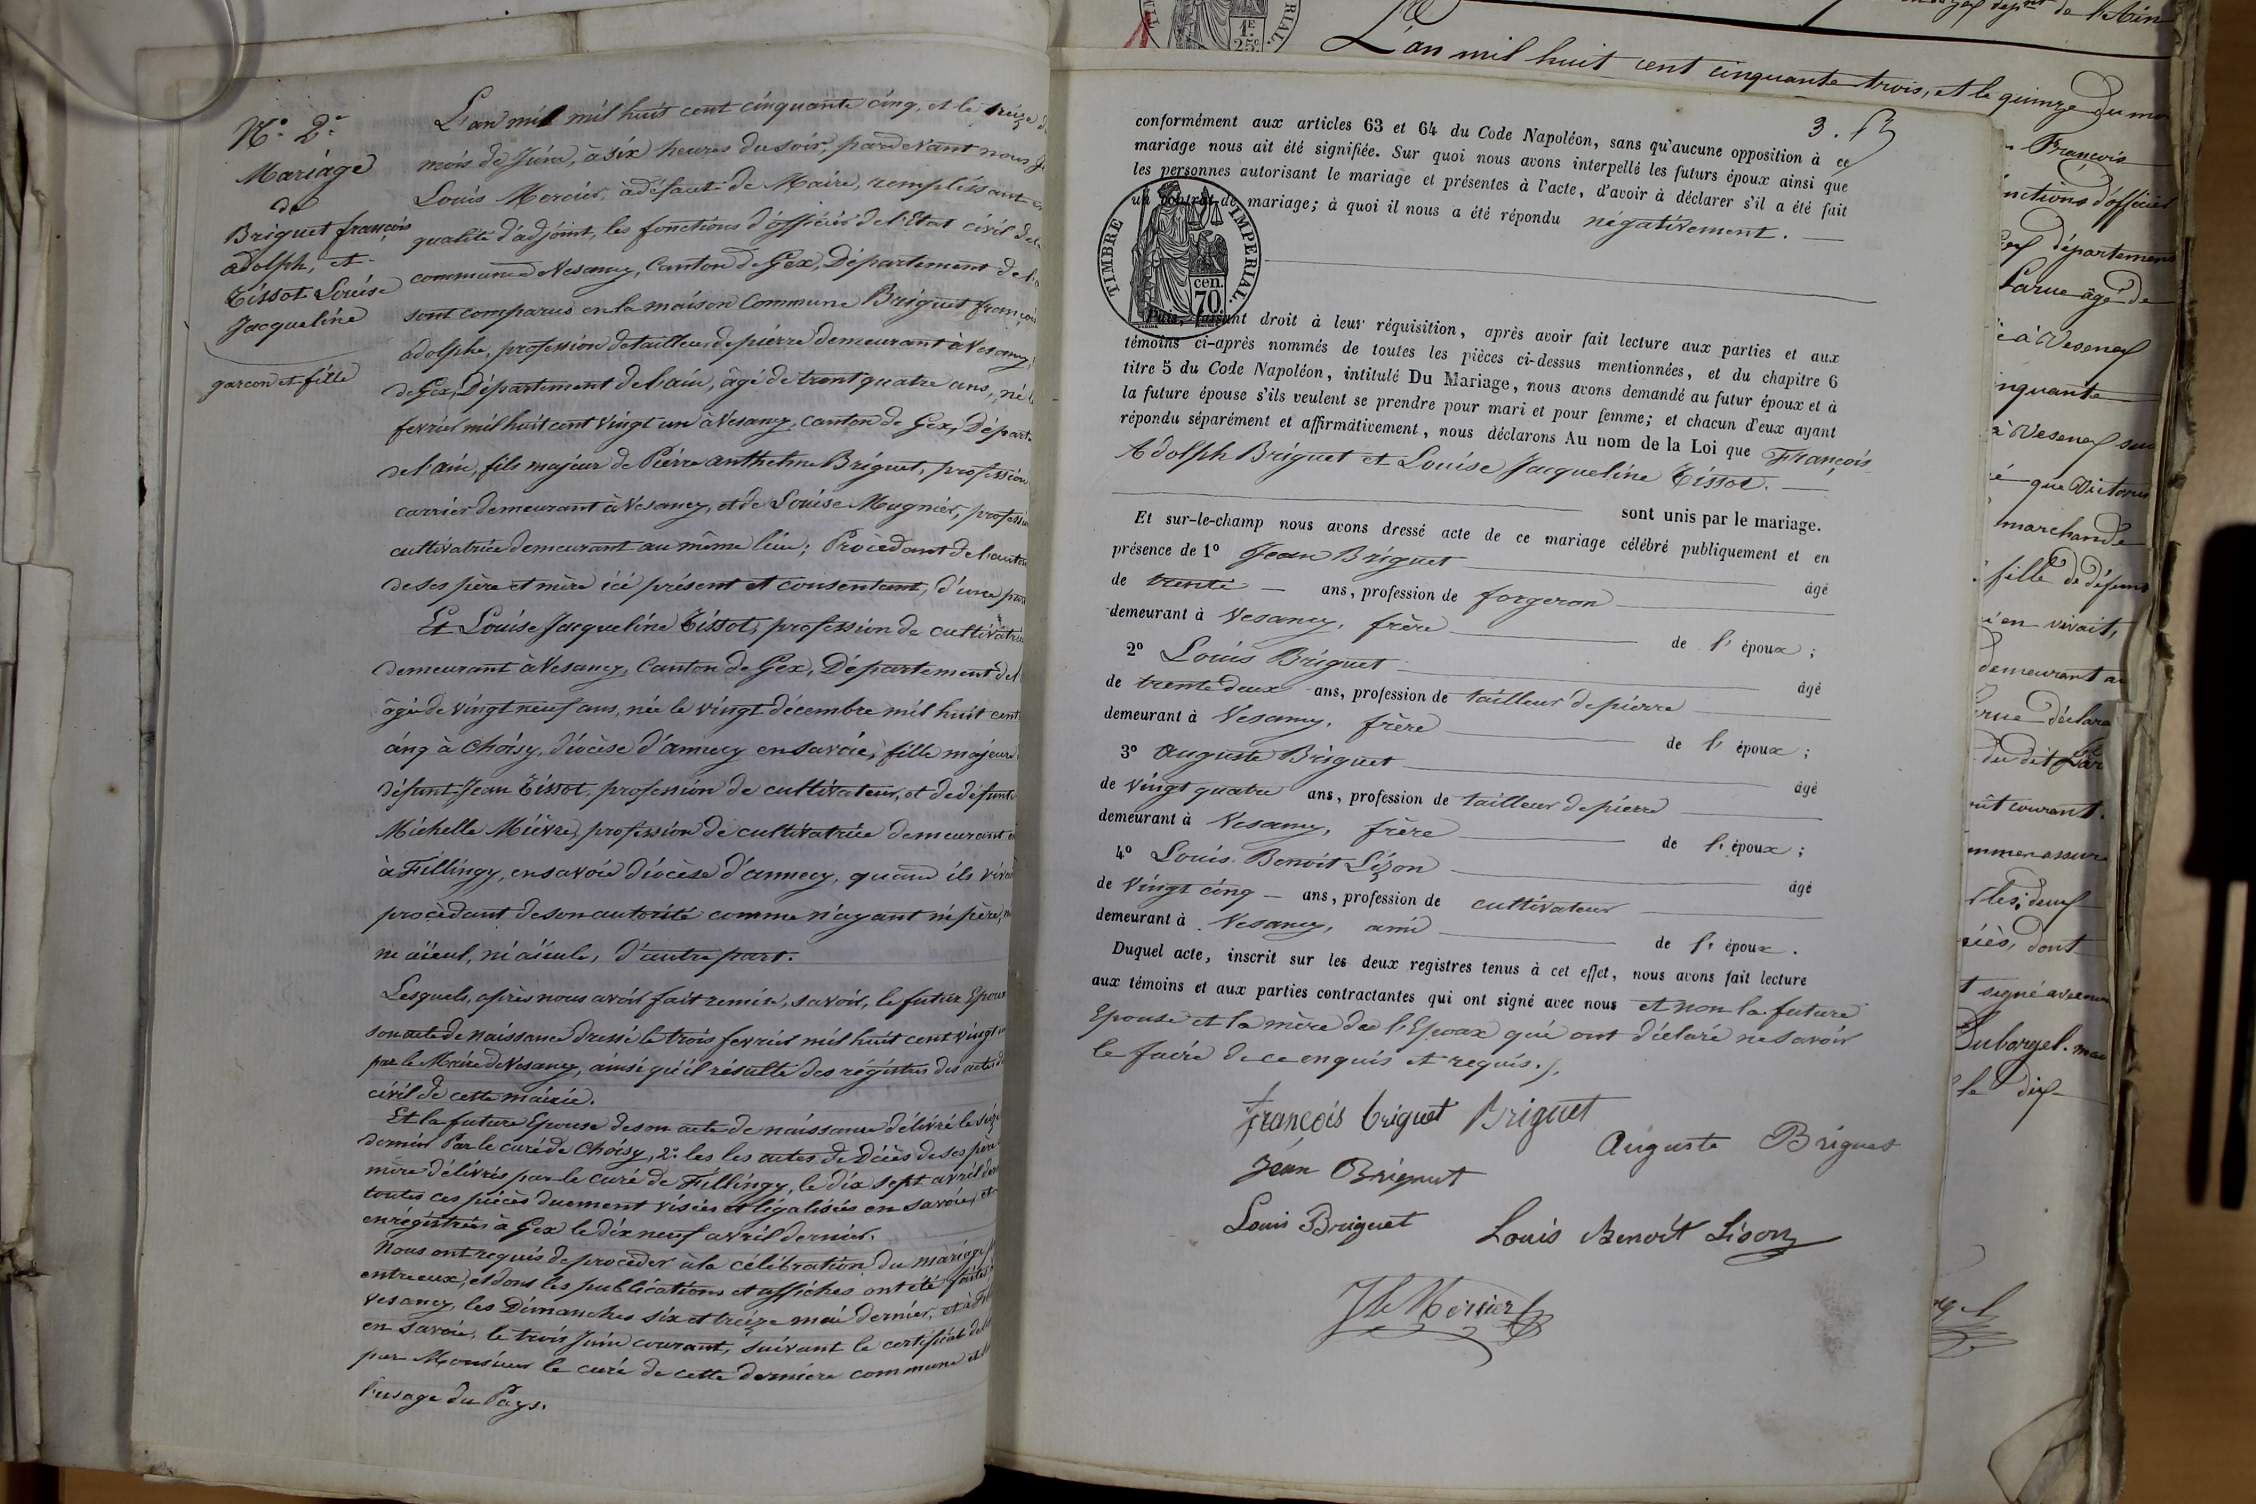 N.° 2.°
Mariage
de
Briguet françois
adolph, et
Tissot Louise
Jacqueline
garcon et fille
L'an mil mil huit cent cinquante cinq, et le treize
mois de Juin, à six heures du soir, pardevant nous
Louis Mercier, à défaut de Maire, remplissant
qualité d'adjoint, les fonctions d'officier de l'Etat civil de
commune de Vesancy, Canton de Gex, Département de
sont comparus en la maison Commune Briguet françois
adolphe, profession de tailleur de pierre demeurant à Vesancy,
de Gex, Département de l'ain, âgé de trent quatre ans, né
fevrier mil huit cent vingt un à Vesancy, canton de Gex, Départ
de l'ain, fils majeur de Pierre anthelme Briguet, profession
carrier demeurant à Vesancy, et de Louise Mugnier, profession
cultivatrice demeurant au même lieu; Procèdant de l'autori
de ses père et mère ici présent et consentant, d'une part
Et Louise Jacqueline Tissot, profession de cultivatrice
demeurant à Vesancy, Canton de Gex, Département de
âgée de vingt neuf ans, née le vingt décembre mil huit cent
cinq à Choisy, diocèse d'annecy en savoie, fille majeure
défunt Jean Tissot, profession de cultivateur, et de défunte
Michelle Mièvre, profession de cultivatrice demeurant
à Fillingy, en savoie diocèse d'annecy, quand ils viva
procèdant de son autorité comme n'ayant ni père,
ni aïeul, ni aïeule, d'autre part.
Lesquels, après nous avoir fait remise, savoir, le futur Epoux
son acte de naissance dressé le trois fevrier mil huit cent vingt
par le Maire de Vesancy, ainsi qu'il résulte des régistres des actes
civil de cette mairie.
Et la future Epouse de son acte de naissance délivré le seize
dernier Par le curé de Choisy, 2.° les les actes de Décès de ses père
mère délivrés par le curé de Fillingy, le dix sept avril
toutes ces pièces duement visées et légalisées en savoie, et
enrégistrées à Gex le dix neuf avril dernier.
Nous ont requis de procèder à la célébration du mariage
entre eux, et dont les publications et affiches ont été faites
Vesancy, les Dimanches six et treize mai dernier, et à
en savoie, le trois Juin courant, suivant le certificat
par Monsieur le curé de cette dernière commune
l'usage du Pays.
3.
conformément aux articles 63 et 64 du Code Napoléon, sans qu'aucune opposition à ce
mariage nous ait été signifiée. Sur quoi nous avons interpellé les futurs époux ainsi que
les personnes autorisant le mariage et présentes à l'acte, d'avoir à déclarer s'il a été fait
un contrat de mariage; à quoi il nous a été répondu négativement.
TIMBRE IMPERIAL.
cen.
70.
Puis, faisant droit à leur réquisition, après avoir fait lecture aux parties et aux
témoins ci-après nommés de toutes les pièces ci-dessus mentionnées, et du chapitre 6
titre 5 du Code Napoléon, intitulé Du Mariage, nous avons demandé au futur époux et à
la future épouse s'ils veulent se prendre pour mari et pour femme; et chacun d'eux ayant
répondu séparément et affirmativement, nous déclarons Au nom de la Loi que François
Adolph Briguet et Louise Jacqueline Tissot.
sont unis par le mariage.
Et sur-le-champ nous avons dressé acte de ce mariage célébré publiquement et en
présence de 1° Jean Briguet âgé
de trente ans, profession de forgeron
demeurant à Vesancy, frère de l' époux ;
2° Louis Briguet âgé
de trente deux ans, profession de tailleur de pierre
demeurant à Vesancy, frère de l' époux ;
3° Auguste Briguet âgé
de vingt quatre ans, profession de tailleur de pierre
demeurant à Vesancy, frère de l' époux ;
4° Louis Benoit Lizon âgé
de vingt cinq ans, profession de cultivateur
demeurant à Vesancy, ami de l' époux .
Duquel acte, inscrit sur les deux registres tenus à cet effet, nous avons fait lecture
aux témoins et aux parties contractantes qui ont signé avec nous et non la future
Epouse et la mère de l'Epoux qui ont déclaré ne savoir
le faire de ce enquis et requis.
François briguet Briguet
Auguste Briguet
Jean Briguet
Louis Briguet
Louis Benoit Lison
Mercier
1F.
25c.
L'an mil huit cent cinquante trois, et le quinze du mo
François
nctions d'officier
département
Larue âgé de
à Vesency
nquante
à Vesency
que Victorine
marchande
fille de défunt
en vivait,
demeurant au
déclara
du dit
courant.
deux
dont
signé avec nous
Dubargel. mai
le dix